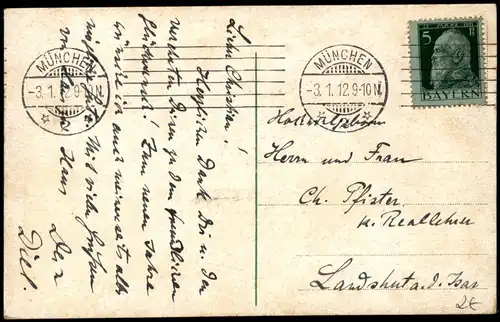 MÜNCHEN
-3.1.12.9-10N.
MÜNCHEN
-3.1.12.9-10N.
5
BAYERN
Lieber Christian!
Herzlichen Dank Dir u. Der
werten Deinen zu den
Glückwunsch! Zum neuen Jahre
wünsche ich auch meinerseits alles
Mit vielen Grüßen
von Haus zu Haus
Dein
Hochwohlgeboren
Herrn und Frau
Ch. Pfister
k. Reallehrer
Landshut a. d. Isar
2€